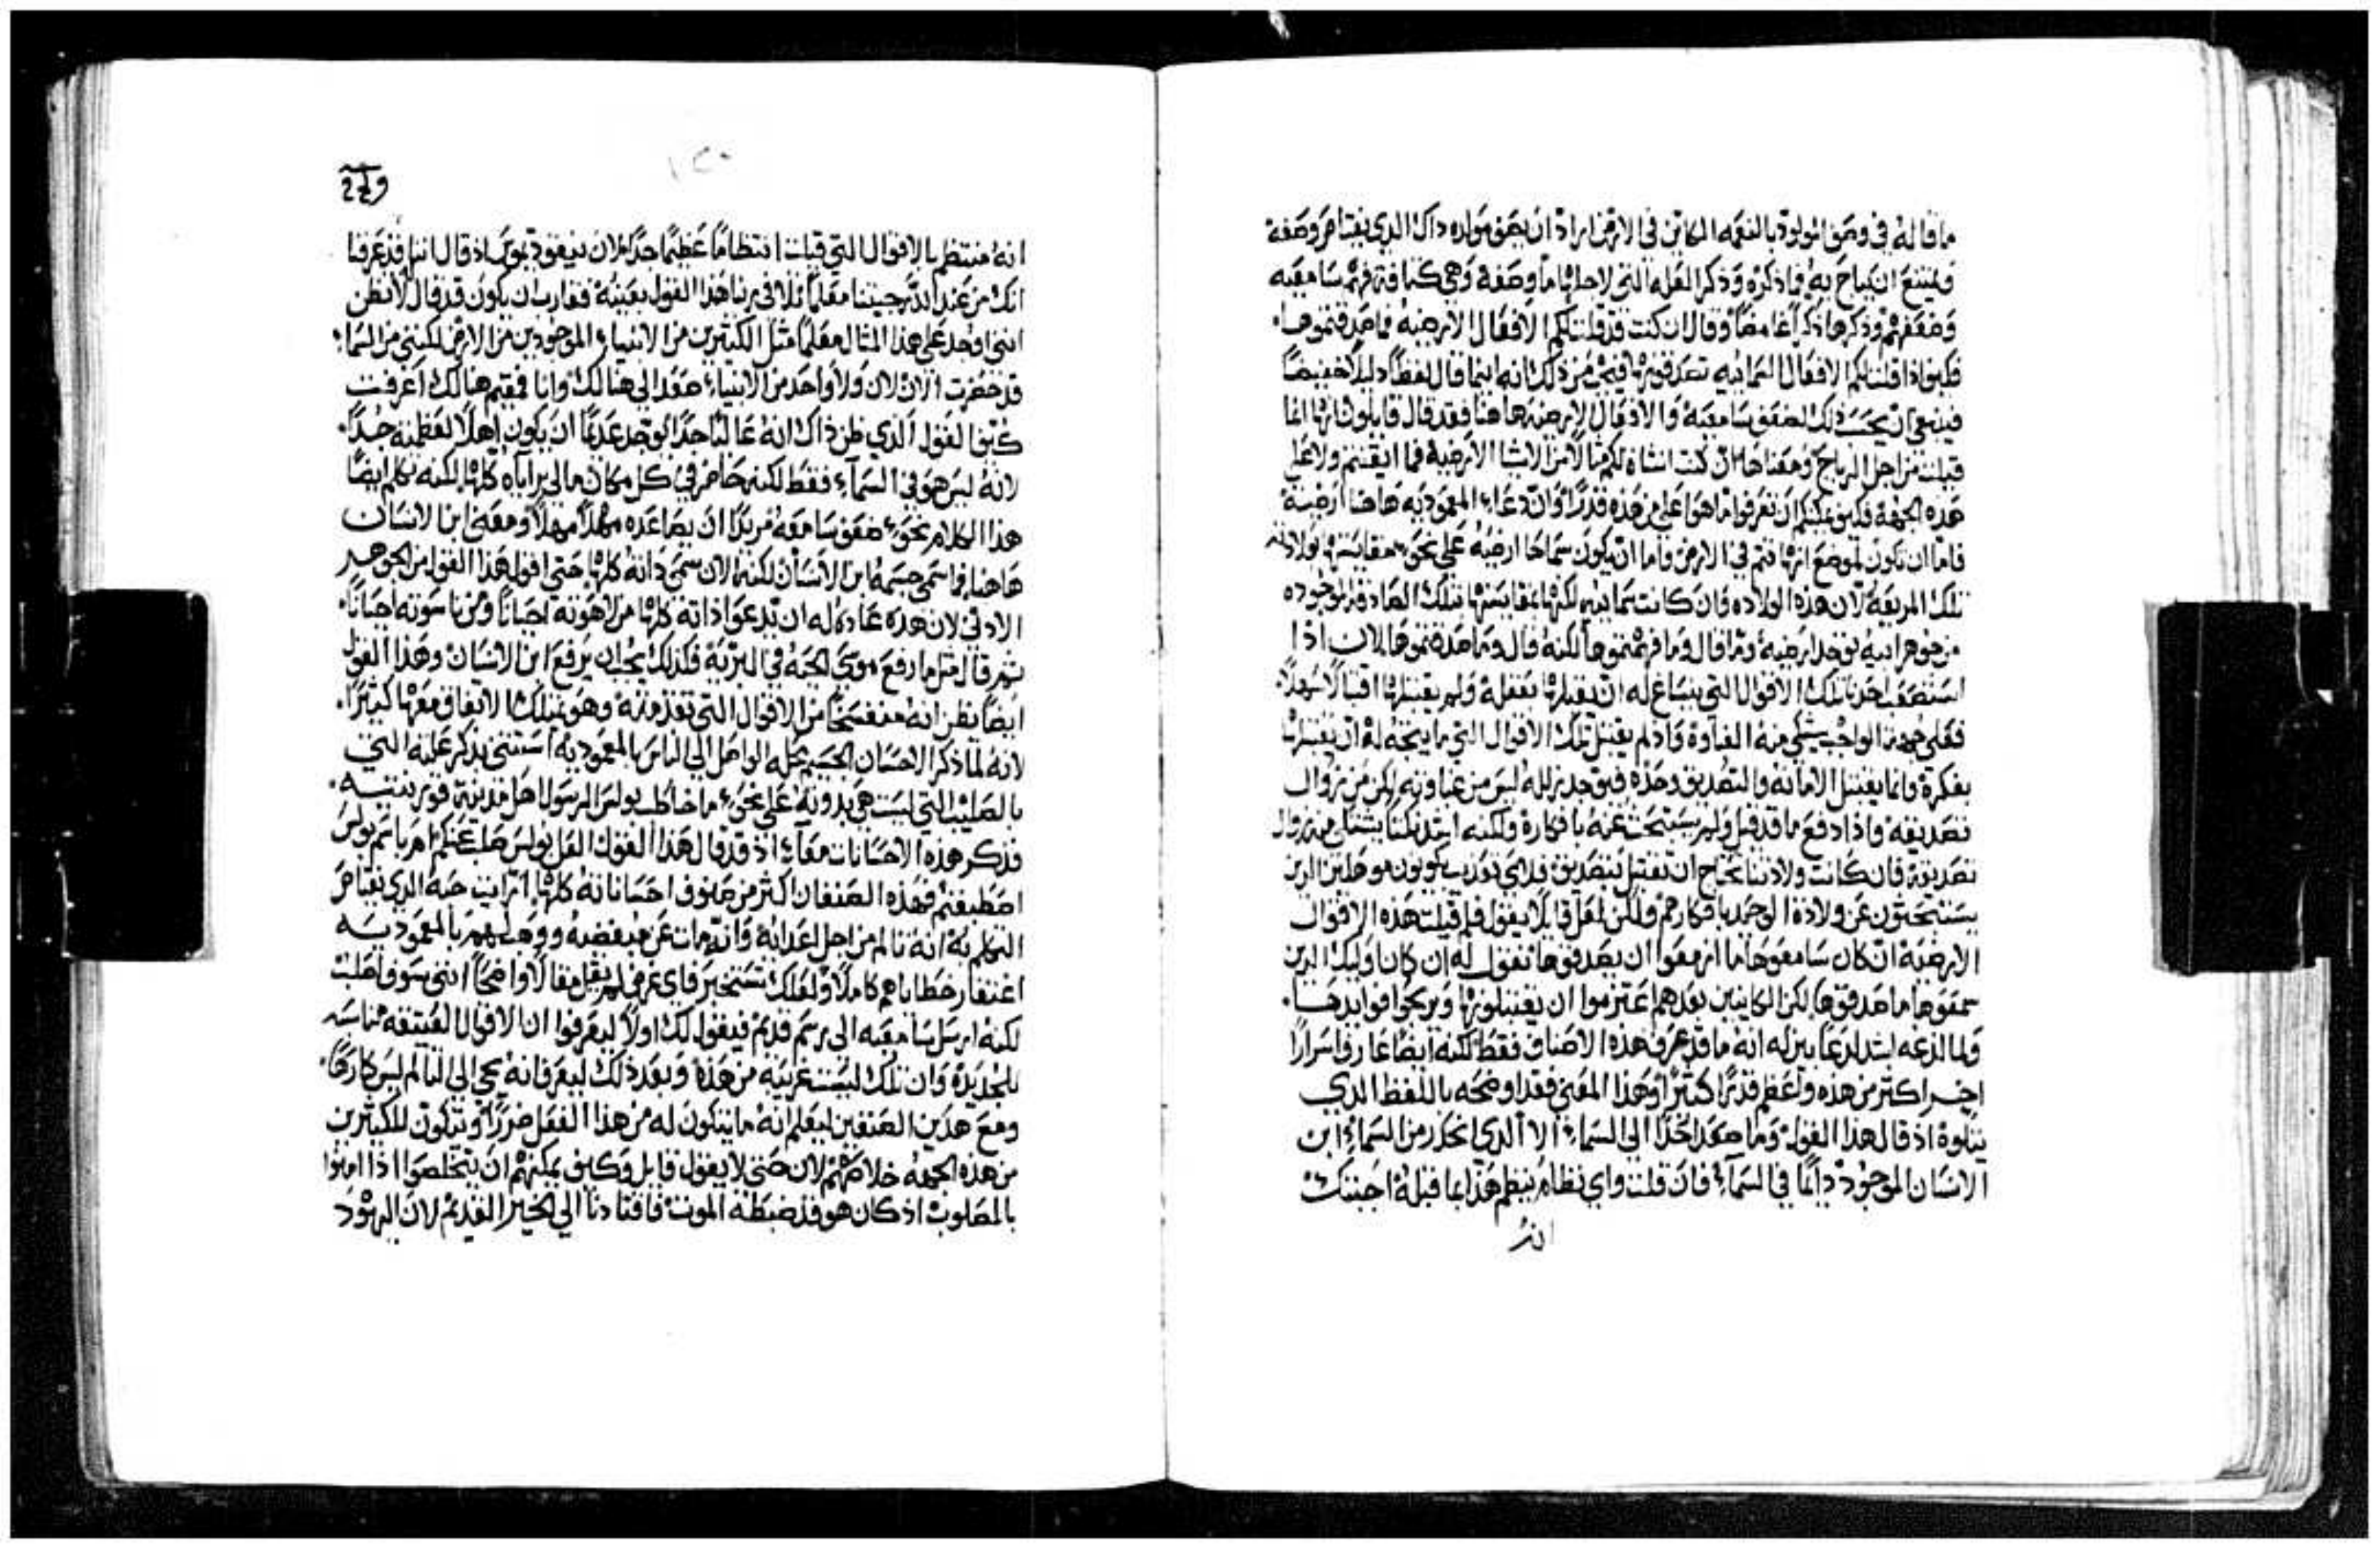 ما قاله في وصف المولود بالنعمه الكاين في الارض اراد ان يصف مولده ذاك الذي يعتاص وصفه
ويمتنع ان يباح به فاذكره وذكر العله التي لاجلها ما وصفه وهي كثافة فهم سامعيه
وضعفهم وذكرها ذكرًا غامضًا وقال ان كنت قد قلت لكم الافعال الارضيه فما صدقتموها.
فكيف اذا قلت لكم الافعال السمائيه تصدقونها فيتم من ذلك انه انما قال لفظًا دليلاً خفيفًا
فينبغي ان يحسب ذلك لضعف سامعيه والافعال الارضيه هاهنا فقد قال قايلون انها انما
قيلت من اجل الرياح ومعناها ان كنت انشات لكم مثالاً من الاشيا الارضيه فما ايقنتم ولا علي
هذه الجهة فكيف يمكنكم ان تعرفوا ما هوا علي من هذه قدرًا وان دعاء المعموديه هاهنا ارضيه
فاما ان تكون لموضع انها تتم في الارض واما ان يكون سماها ارضيه علي نحو مقايستها بولادته
تلك المريعه لان هذه الولاده وان كانت سمائيه لكنها بمقايستها بتلك الصادقه الموجوده
من جوهر ابيه توجد ارضيه وما قال وما فهمتموها لكنه قال وما صدقتموها لان اذا
استصعب احدنا تلك الاقوال التي ينساغ له ان يقبلها بعقله ولم يقبلها اقبالاً سهلاً.
فعلي جهة الواجب يشتكي منه الغباوة واذ لم يقبل تلك الاقوال التي ما يتجه له ان يقبلها
بفكرة وانما يقبل الامانه والتصديق وحده فيوجد زلله ليس من غباوته لكن من زوال
تصديقه واذا دفع ما قد قيل ولم يستبحث عنه بافكارة ولكنه
تصديقه فان كانت ولادتنا تحتاج ان تقبل بتصديق فلاي تعذيب يكونون موهلين الذين
يستبحثون عن ولادة الوحيد بافكارهم ولكن لعل قايلاً يقول فلم قيلت هذه الاقوال
الارضيه ان كان سامعوها ما ازمعوا ان يصدقوها نقول له ان كان اوليك الذين
سمعوها ما صدقوها لكن الكاينين بعدهم اعتزموا ان يقبلونها ويربحوا فوايدها.
ولما لذعه لذعًا بين له انه ما قد عرف هذه الاصناف فقط لكنه ايضًا عارف اسرارًا
اخر اكثر من هذه واعظم قدرًا كثيرًا وهذا المعني فقد اوضحه باللفظ الذي
يتلوة اذ قال هذا القول وما صعد احدًا الي السماء الا الذي انحدر من السماء ابن
الانسان الموجود دايمًا في السماء فان قلت واي نظام ينظم هذا بما قبله اجبتك
انه
انه منتظم بالاقوال التي قيلت انتظامًا عظيمًا جدًا لان نيقوديموس اذ قال اننا قد عرفنا
انك من عند الله جيتنا معلمًا تلافي ربنا هذا القول بعينه فقارب ان يكون قد قال لا تظن
انني اوجد علي هذا المثال معلمًا مثل الكثيرين من الانبياء الموجودين من الارض لكنني من السماء
قد حضرت الان لان ولا واحد من الانبياء صعد الي هنالك وانا فمقيم هنالك اعرفت
كيف القول الذي ظن ذاك انه عاليًا جدًا يوجد عديمًا ان يكون اهلاً لعظمته جدًا.
لانه ليس هو في السماء فقط لكنه حاضر في كل مكان مالي براياه كلها لكنه تكلم ايضًا
هذا الكلام نحو ضعف سامعه مريدًا ان يصاعده مهلاً مهلاً ومعني ابن الانسان
هاهنا فما سمي جسمه ابن الانسان لكنه الان سمي ذاته كلها حتي اقول هذا القول من الجوهر
الادني لان هذه عادة له ان تدعوا ذاته كلها من لاهوته احيانًا ومن ناسوته احيانًا.
ثم قال مثل ما رفع موسي الحيه في البريه فكذلك يجب ان يرفع ابن الانسان وهذا القول
ايضًا يظن انه منفسخًا من الاقوال التي تقدمته وهو يمتلك الاتفاق معها كثيرًا.
لانه لما ذكر الاحسان الجسيم محله الواصل الي الناس بالمعموديه استثني بذكر علته التي
بالصليب التي ليست هي بدونه علي نحو ما خاطب بولس الرسول اهل مدينة قورنتيه.
فذكر هذه الاحسانات معًا اذ قد قال هذا القول العل بولس صلب عنكم ام باسم بولس
اصطبغتم فهذه الصنفان اكثر من صنوف احساناته كلها اترانيت حبه الذي يعتاص
التكلم به انه تالم من اجل اعدايه وانه مات عن مبغضيه ووهب لهم بالمعموديه
اغتفار خطاياهم كاملاً ولعلك تستخبر فاي غرض لم يقل مقالاً واضحًا انني سوف اصلب
لكنه ارسل سامعيه الي رسم قديم فيقول لك اولاً ليعرفوا ان الاقوال العتيقه مناسبه
للجديدة وان تلك ليست غريبه من هذه وبعد ذلك ليعرف انه يجي الي التالم ليس كارهًا.
ومع هذين الصنفين ليعلم انه ما يتكون له من هذا الفعل ضررًا وتتكون للكثيرين
من هذه الجهه خلاصهم لان حتي لا يقول قايل وكيف يمكنهم ان يتخلصوا اذا امنوا
بالمصلوب اذ كان هو قد ضبطه الموت فاقتادنا الي الخبر القديم لان اليهود